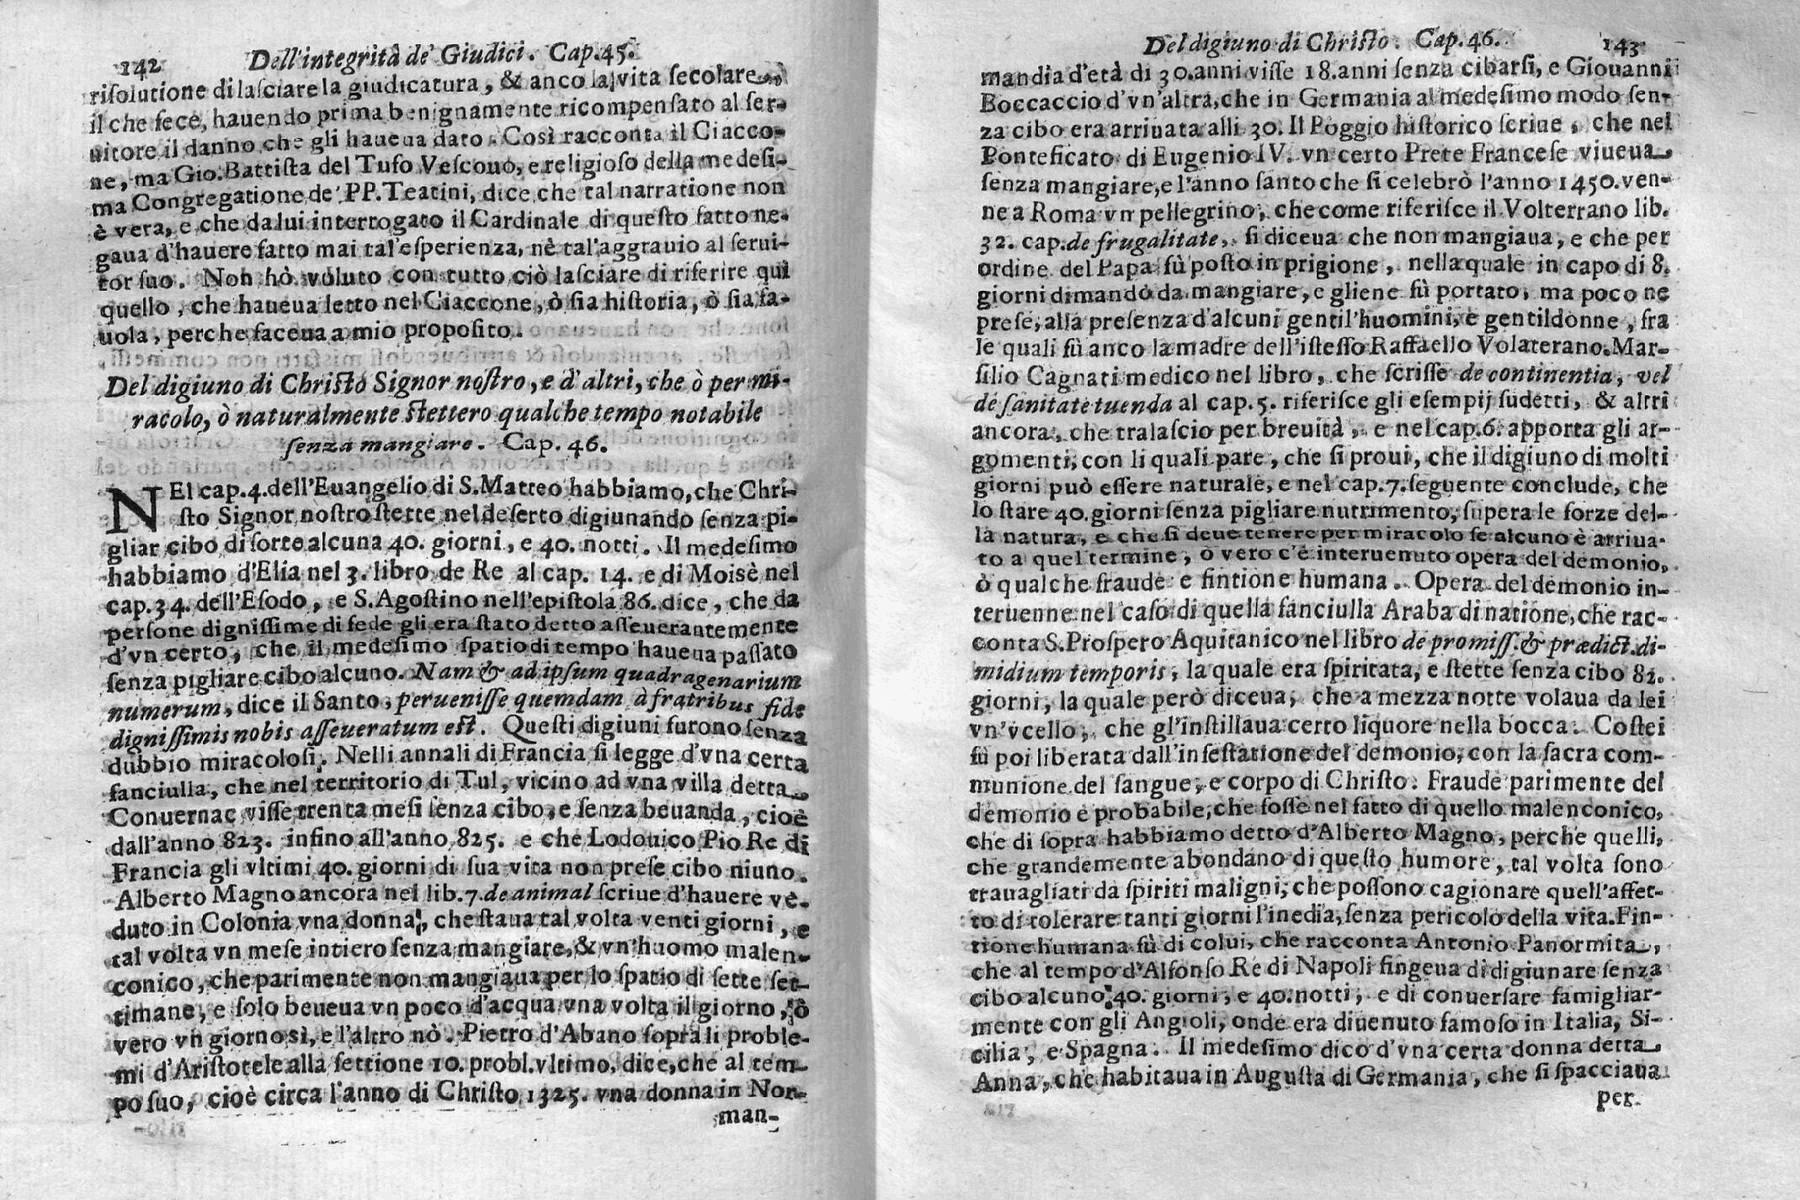 142 Dell'integrità de' Giudici. Cap.45.
risolutione di lasciare la giudicatura, & anco la vita secolare,
il che fece, hauendo prima benignamente ricompensato al ser-
uitore il danno che gli haueua dato. Così racconta il Ciacco-
ne, ma Gio. Battista del Tufo Vescouo, e religioso della medesi-
ma Congregatione de' PP. Teatini, dice che tal narratione non
è vera, e che da lui interrogato il Cardinale di questo fatto ne-
gaua d'hauere fatto mai tal'esperienza, nè tal'aggrauio al serui-
tor suo. Non hò voluto con tutto ciò lasciare di riferire qui
quello, che haueua letto nel Ciaccone, ò sia historia, ò sia fa-
uola, perche faceua a mio proposito.
Del digiuno di Christo Signor nostro, e d'altri, che ò per mi-
racolo, ò naturalmente stettero qualche tempo notabile
senza mangiare. Cap. 46.
NEl cap.4. dell'Euangelio di S. Matteo habbiamo, che Chri-
sto Signor nostro stette nel deserto digiunando senza pi-
gliar cibo di sorte alcuna 40. giorni, e 40. notti. Il medesimo
habbiamo d'Elia nel 3. libro de Re al cap. 14. e di Moisè nel
cap.34. dell'Esodo, e S. Agostino nell'epistola 86. dice, che da
persone dignissime di fede gli era stato detto asseuerantemente
d'vn certo, che il medesimo spatio di tempo haueua passato
senza pigliare cibo alcuno. Nam & ad ipsum quadragenarium
numerum, dice il Santo, peruenisse quemdam à fratribus fide
dignissimis nobis asseueratum est. Questi digiuni furono senza
dubbio miracolosi. Nelli annali di Francia si legge d'vna certa
fanciulla, che nel territorio di Tul, vicino ad vna villa detta
Conuernac visse trenta mesi senza cibo, e senza beuanda, cioè
dall'anno 823. infino all'anno 825. e che Lodouico Pio Re di
Francia gli vltimi 40. giorni di sua vita non prese cibo niuno.
Alberto Magno ancora nel lib.7. de animal scriue d'hauere ve-
duto in Colonia vna donna, che staua tal volta venti giorni, e
tal volta vn mese intiero senza mangiare, & vn'huomo malen-
conico, che parimente non mangiaua per lo spatio di sette set-
timane, e solo beueua vn poco d'acqua vna volta il giorno, ò
vero vn giorno sì, e l'altro nò. Pietro d'Abano sopra li proble-
mi d'Aristotele alla settione 10. probl. vltimo, dice, che al tem-
po suo, cioè circa l'anno di Christo 1325. vna donna in Nor-
man-
Del digiuno di Christo. Cap. 46. 143
mandia d'età di 30. anni visse 18. anni senza cibarsi, e Giouanni
Boccaccio d'vn'altra, che in Germania al medesimo modo sen-
za cibo era arriuata alli 30. Il Poggio historico scriue, che nel
Ponteficato di Eugenio IV. vn certo Prete Francese viueua
senza mangiare, e l'anno santo che si celebrò l'anno 1450. ven-
ne a Roma vn pellegrino, che come riferisce il Volterrano lib.
32. cap. de frugalitate, si diceua che non mangiaua, e che per
ordine del Papa fù posto in prigione, nella quale in capo di 8.
giorni dimandò da mangiare, e gliene fù portato, ma poco ne
prese, alla presenza d'alcuni gentil'huomini, e gentildonne, fra
le quali fù anco la madre dell'istesso Raffaello Volaterano. Mar-
silio Cagnati medico nel libro, che scrisse de continentia, vel
de sanitate tuenda al cap. 5. riferisce gli esempij sudetti, & altri
ancora, che tralascio per breuità, e nel cap.6. apporta gli ar-
gomenti, con li quali pare, che si proui, che il digiuno di molti
giorni può essere naturale, e nel cap.7. seguente conclude, che
lo stare 40. giorni senza pigliare nutrimento, supera le forze del-
la natura, e che si deue tenere per miracolo se alcuno è arriua-
to a quel termine, ò vero c'è interuenuto opera del demonio,
ò qualche fraude e fintione humana. Opera del demonio in-
teruenne nel caso di quella fanciulla Araba di natione, che rac-
conta S. Prospero Aquitanico nel libro de promiss. & prædict. di-
midium temporis, la quale era spiritata, e stette senza cibo 82.
giorni, la quale però diceua, che a mezza notte volaua da lei
vn'vcello, che gl'instillaua certo liquore nella bocca. Costei
fù poi liberata dall'infestatione del demonio, con la sacra com-
munione del sangue, e corpo di Christo. Fraude parimente del
demonio è probabile, che fosse nel fatto di quello malenconico,
che di sopra habbiamo detto d'Alberto Magno, perche quelli,
che grandemente abondano di questo humore, tal volta sono
trauagliati da spiriti maligni, che possono cagionare quell'affet-
to di tolerare tanti giorni l'inedia, senza pericolo della vita. Fin-
tione humana fù di colui, che racconta Antonio Panormita,
che al tempo d'Alfonso Re di Napoli fingeua di digiunare senza
cibo alcuno 40. giorni, e 40. notti, e di conuersare famigliar-
mente con gli Angioli, onde era diuenuto famoso in Italia, Si-
cilia, e Spagna. Il medesimo dico d'vna certa donna detta
Anna, che habitaua in Augusta di Germania, che si spacciaua
per